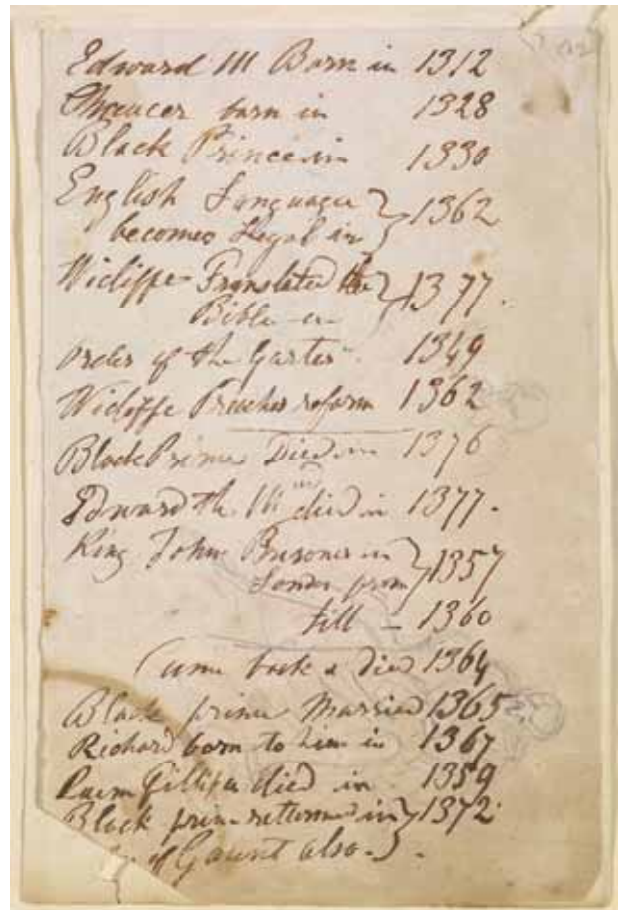 Edward III Born in 1312
Chaucer born in 1328
Black Prince in 1330
English Language
becomes Legal in } 1362
Wicliffe Translated the
Bible in } 1377.
Order of the Garter - 1349
Wicliffe Preaches reform 1362
Black Prince Died in 1376
Edward the IIIrd died in 1377.
King John Prisoner in
London from } 1357
till - 1360
Came back & died 1364
Black prince Married 1365
Richard born to him in 1367
died in 1359
Black prin returned in } 1372
of Gaunt also.